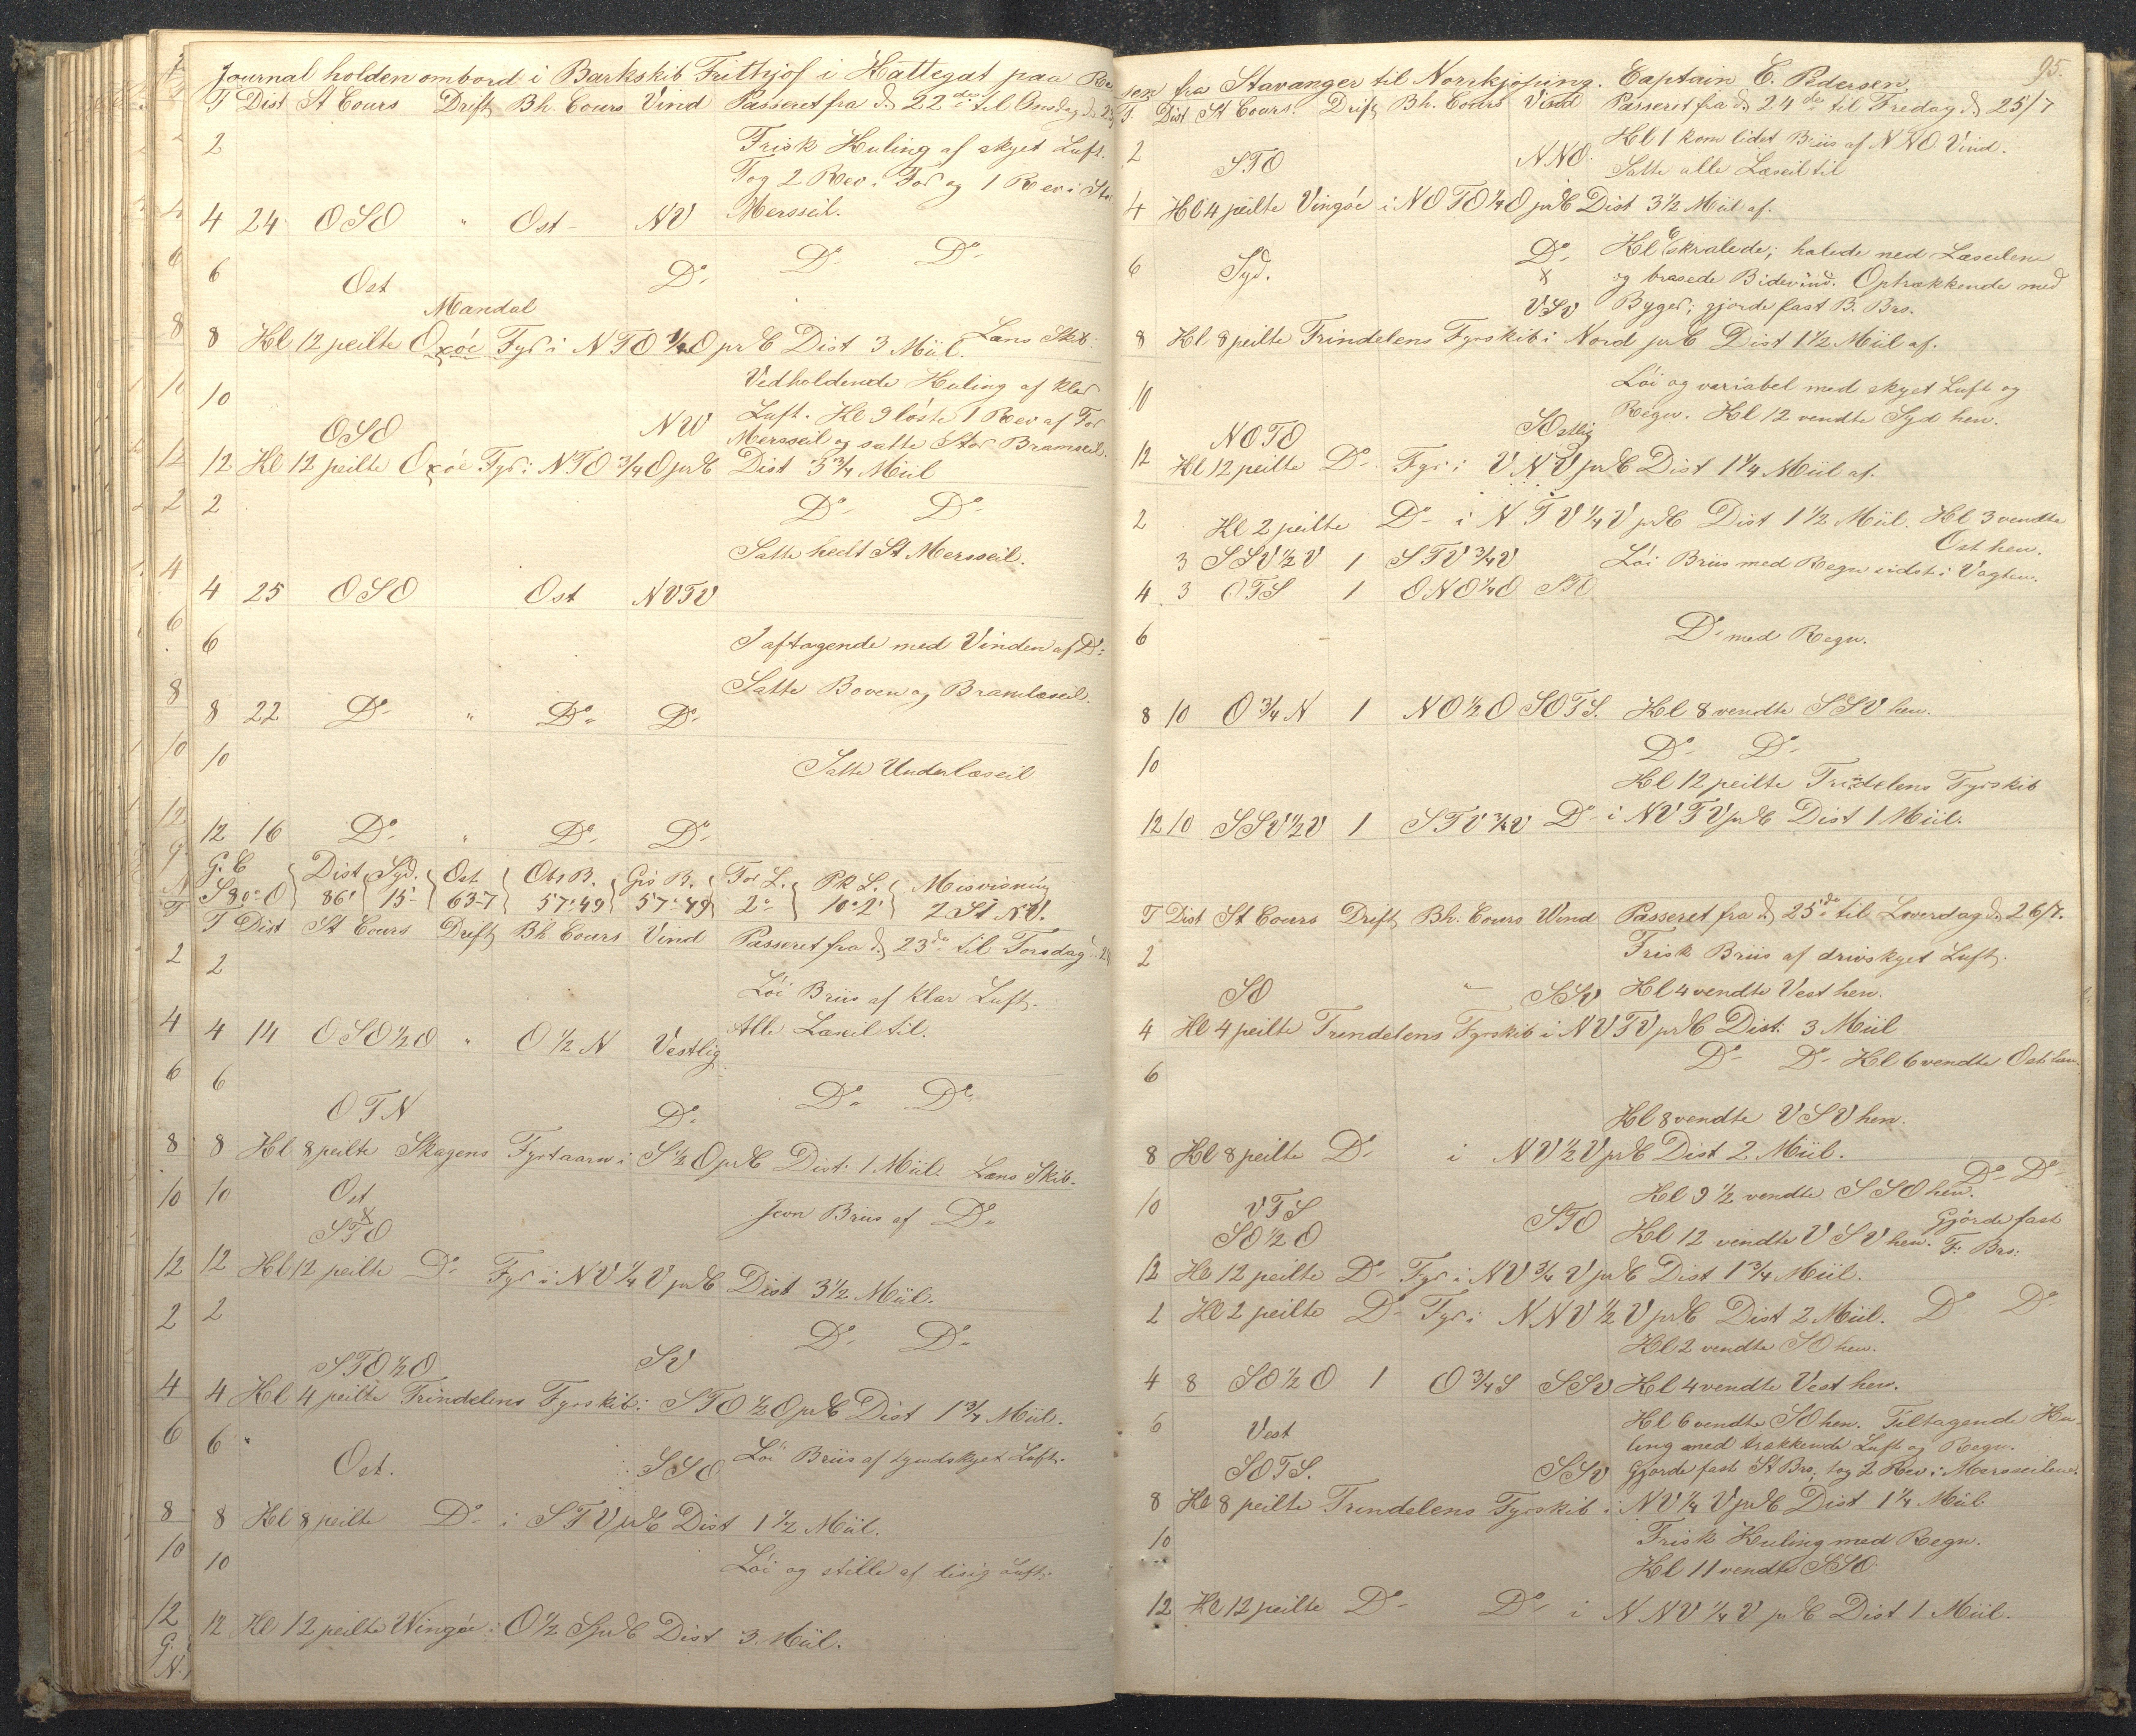 Journal holden ombord i Barkskib Frithjof i Kattegat paa Rei
T Dist St Cours Drift Bh. Cours Vind Passeret fra d. 22des til Onsdag d. 23
2 Frisk Kuling af skyet Luft.
Tog 2 Rev i For og 1 Rev i Stor
4 24 OSO " Ost - NV Mersseil.
6 Ost Do Do Do
Mandal
8 Kl 12 peilte Oxöe Fyr i NTO 3/4 O pr C Dist 3 Miil. Læns Skib.
10 Vedholdende Kuling af klar
OSO NW Luft. Kl 9 löste 1 Rev af For
Mersseil og satte Stor Bramseil.
12 Kl 12 peilte Oxöe Fyr i NTO 3/4 O pr C Dist 3 3/4 Miil
2 Do Do
Satte heelt St Mersseil.
4 25 OSO Ost NVTV
6 I aftagende med Vinden af Do
Satte Boven og Bramlæseil.
8 22 Do " Do Do
10 Satte Underlæseil
12 16 Do " Do Do
G. C Dist Syd. Ost Obs B. Gis B. For L. PK L. Misvisning
S 80° O 86' 15' 63-7 57°49 57°49 2° 10°2' 2 St NV.
T Dist St Cours Drift Bh. Cours Vind Passeret fra d. 23de til Torsdag 24
2 Löi Briis af klar Luft.
4 14 OSO 1/2 O " O 1/2 N Vestlig Alle Læseil til.
6 OTN Do Do Do
8 Kl 8 peilte Skagens Fyrtaarn i S 1/2 O pr C Dist: 1 Miil. Læns Skib.
10 Ost
STO Jevn Briis af Do
12 Kl 12 peilte Do Fyr i NV 1/4 V pr C Dist 3 1/2 Miil.
2 Do Do
STO 1/2 O SV
4 Kl 4 peilte Trindelens Fyrskib i STO 1/2 O pr C Dist 1 3/4 Miil.
6 Ost. SSO Löi Briis af tyndskyet Luft.
8 Kl 8 peilte Do i STV pr C Dist 1 1/2 Miil.
10 Löi og stille af disig Luft.
12 Kl 12 peilte Wingöe i O 1/2 S pr C Dist 3 Miil.
95.
sen fra Stavanger til Norrkjöping. Captain C. Pedersen.
T. Dist St Cours. Drift Bh. Cours Vind Passeret fra d. 24de til Fredag d. 25/7
2 STO NNO. Kl 1 kom lidet Briis af NNO Vind.
Satte alle Læseil til
4 Kl 4 peilte Vingöe i NOTO 1/4 O pr C Dist 3 1/2 Miil af.
6 Syd. Do Kl 6 skralede; halede ned Læseilene
x og brasede Bidevind. Optrækkende med
VSV Byger; gjorde fast B. Brs.
8 Kl 8 peilte Trindelens Fyrskib i Nord pr C Dist 1 1/2 Miil af.
10 Löi og variabel med skyet Luft og
NOTO SOstlig Regn. Kl 12 vendte Syd hen.
12 Kl 12 peilte Do Fyr i VNV pr C Dist 1 1/4 Miil af.
2 Kl 2 peilte Do i NTV 1/4 V pr C Dist 1 1/2 Miil. Kl 3 vendte
Ost hen.
3 SSV 1/2 V 1 STV 3/4 V Löi Briis med Regn sidst i Vagten.
4 3 OTS 1 ONO 1/4 O STO
6 Do med Regn.
8 10 O 3/4 N 1 NO 1/2 O SOTS. Kl 8 vendte SSV hen.
10 Do Do
Kl 12 peilte Trindelens Fyrskib
12 10 SSV 1/2 V 1 STV 3/4 V Do i NVTV pr C Dist 1 Miil.
T Dist St Cours Drift Bh. Cours Wind Passeret fra d. 25de til Löverdag d. 26/7.
2 Frisk Briis af drivskyet Luft.
SO " SSV Kl 4 vendte Vest hen.
4 Kl 4 peilte Trindelens Fyrskib i NVTV pr C Dist: 3 Miil
6 Do Do Kl 6 vendte Ost hen.
Kl 8 vendte VSV hen.
8 Kl 8 peilte Do i NV 1/2 V pr C Dist 2 Miil. Do Do
10 VTS Kl 9 1/2 vendte SSO hen. Gjörde fast
SO 1/2 O STO Kl 12 vendte VSV hen. F. Brs:
12 Kl 12 peilte Do Fyr i NV 3/4 V pr C Dist 1 3/4 Miil.
2 Kl 2 peilte Do Fyr i NNV 1/2 V pr C Dist 2 Miil. Do Do
Kl 2 vendte SO hen.
4 8 SO 1/2 O 1 O 3/4 S SSV Kl 4 vendte Vest hen.
6 Vest Kl 6 vendte SO hen. Tiltagende Ku-
ling med trækkende Luft og Regn.
SOTS. SSV Gjorde fast St Brs, tog 2 Rev i Mersseilene.
8 Kl 8 peilte Trindelens Fyrskib i NV 1/4 V pr C Dist 1 1/4 Miil.
10 Frisk Kuling med Regn.
Kl 11 vendte SSO
12 Kl 12 peilte Do Do i NNV 1/4 V pr C Dist 1 Miil.